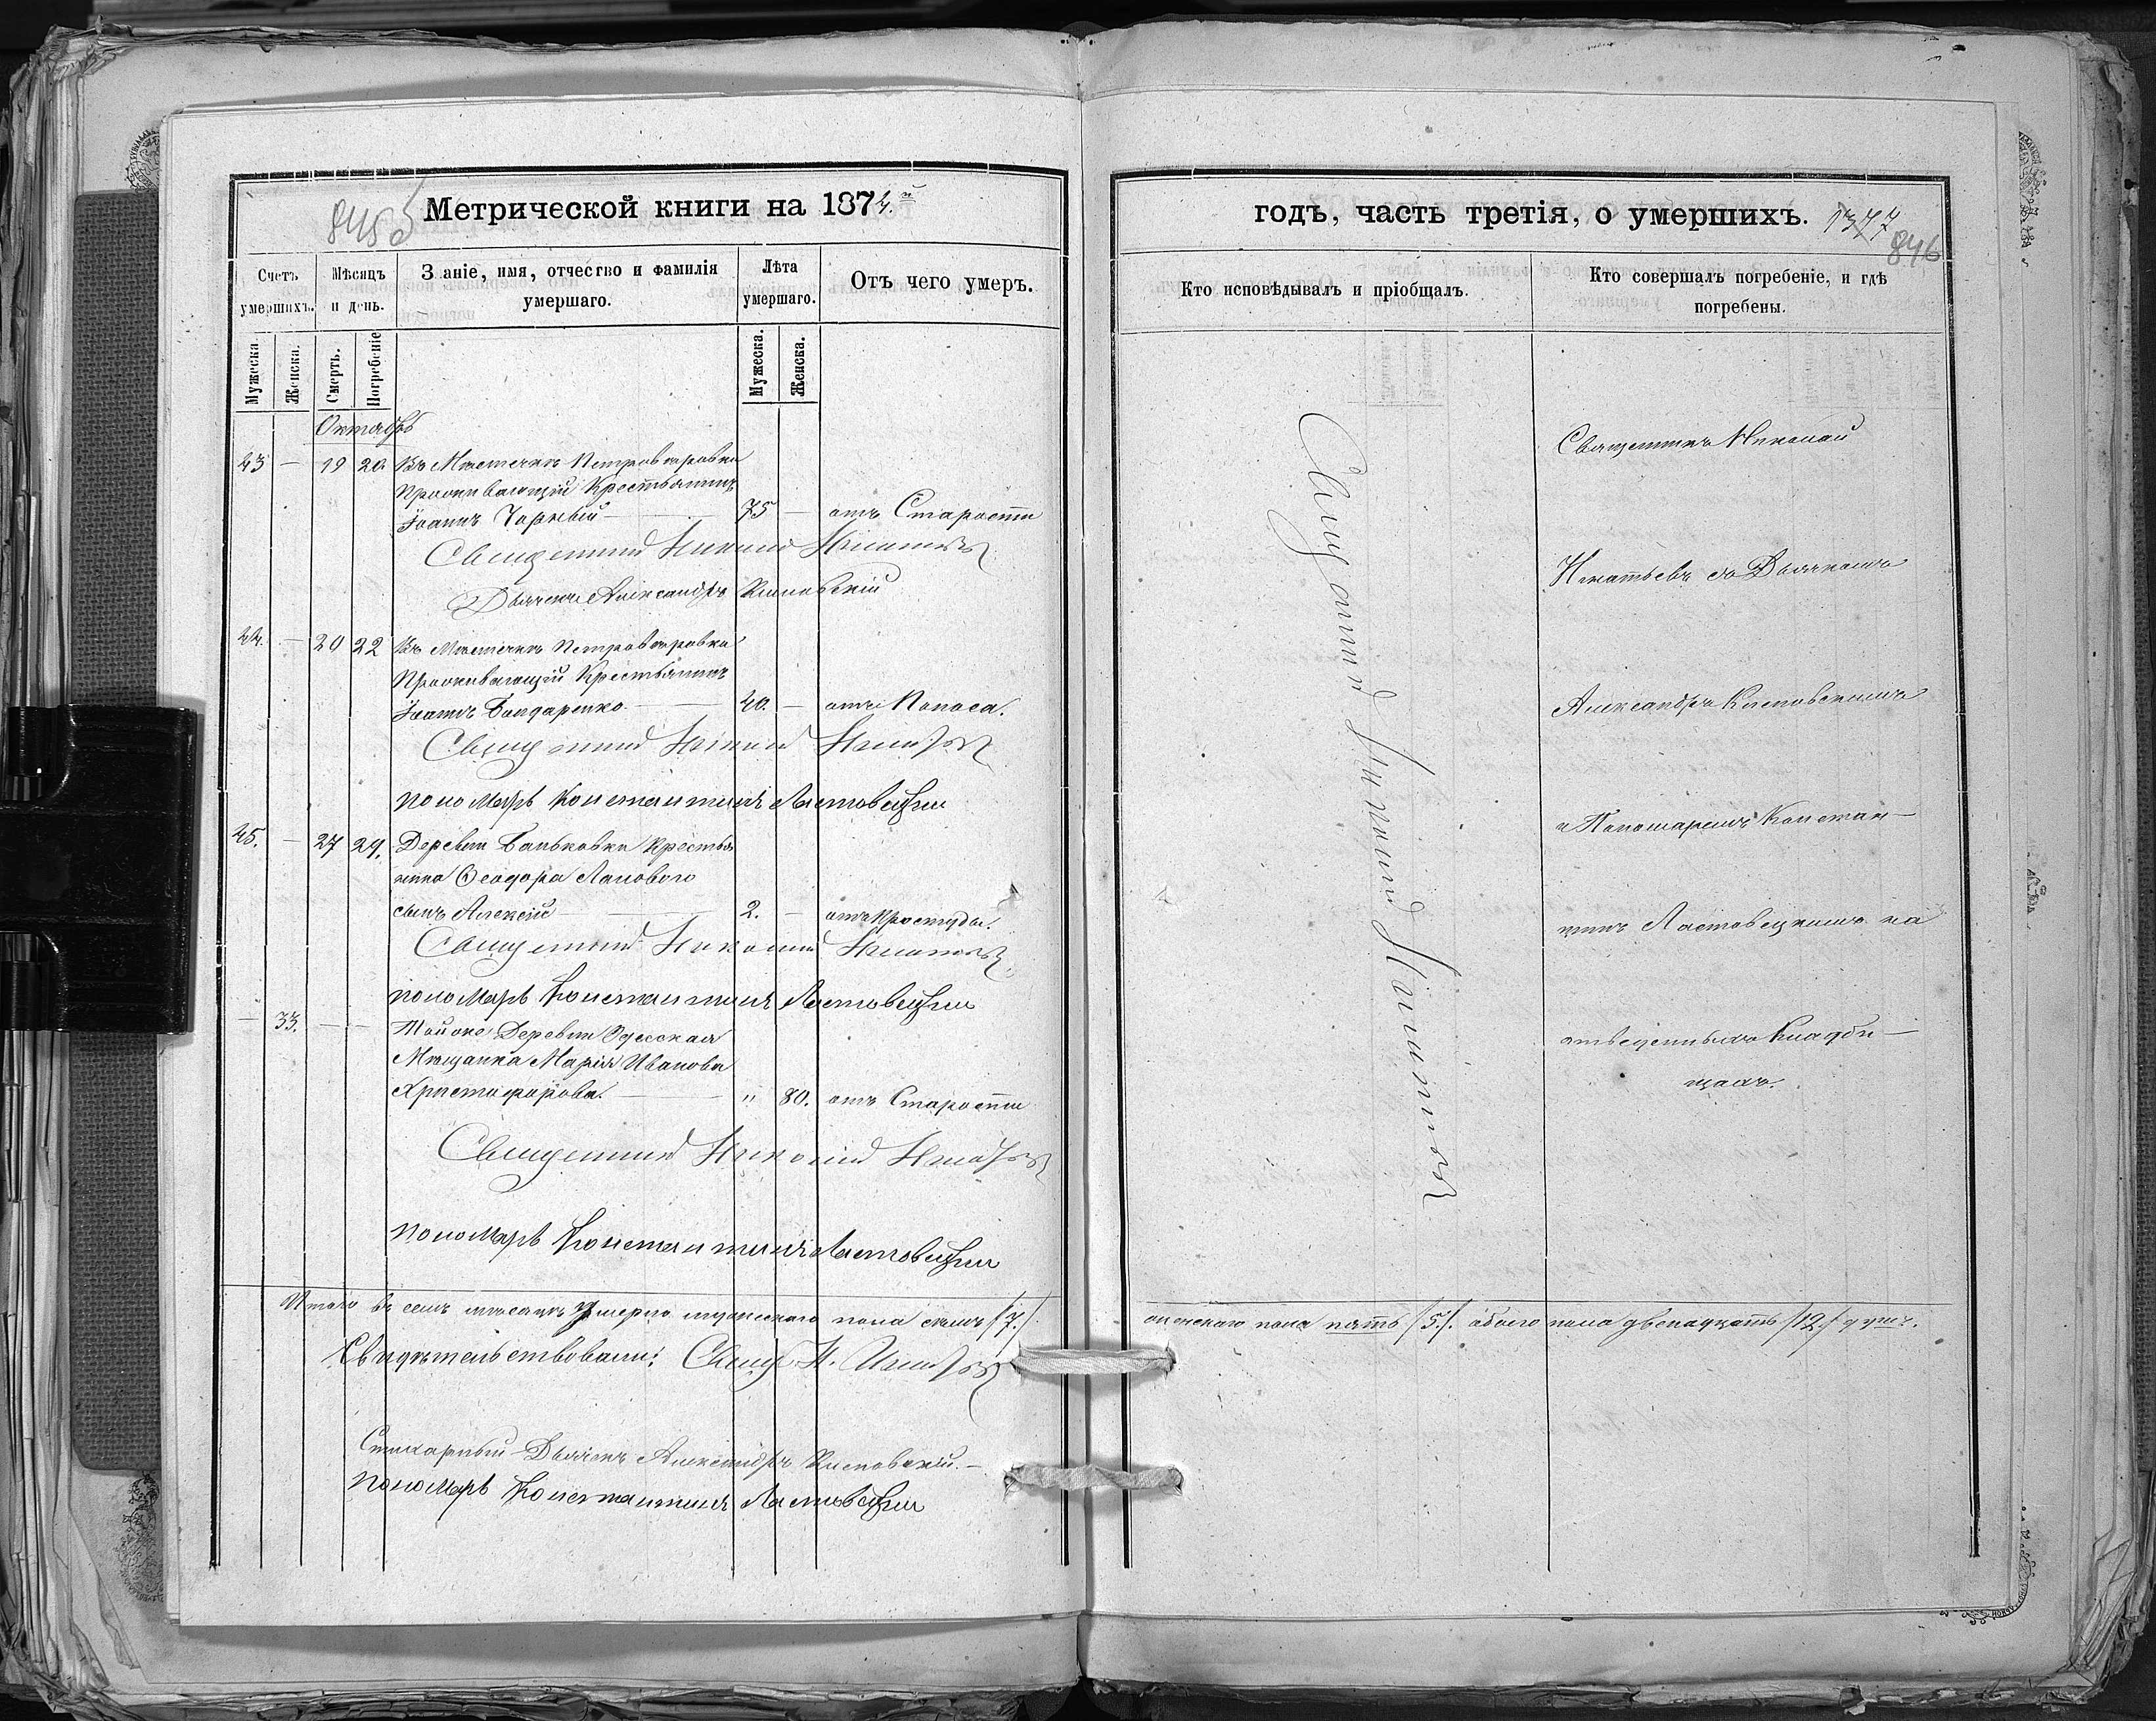 Метрической книги на 1874.й
845
Счетъ умершихъ.
Мѣсяцъ и день.
Званіе, имя, отчество и фамилія умершаго.
Лѣта умершаго.
Отъ чего умеръ.
Мужеска.
Женска.
Смерть.
Погребеніе
Мужеска.
Женска.
Октябрь
43 — 19 20 Въ Мѣстечкѣ Петровѣровка
Проживающій Крестьянинъ
Іоаннъ Чорный — 75 — отъ Старости
Священникъ Николай Игнатьевъ
Дьячекъ Александръ
44. — 20 22 Въ Мѣстечкѣ Петровѣровка
Проживающій Крестьянинъ
Іоаннъ Бондаренко — 40. — отъ Поноса.
Священникъ Николай Игнатьевъ
Пономарь Константинъ Ластовецкій
45. — 27 29. Деревни Баньковки Крестья
нина Ѳеодора Ланового
сынъ Алексій — 2. — отъ Простуды.
Священникъ Николай Игнатьевъ
Пономарь Константинъ Ластовецкій
— 33. — — Тойже Деревни Одесская
Мѣщанка Марія Иванова
Христофорова. — " 80. отъ Старости
Священникъ Николай Игнатьевъ
Пономарь Константинъ Ластовецкій
Итого въ семъ мѣсяцѣ умерло мужескаго пола семь /7./
Свидѣтельствовали: Свящ. Н. Игнатьевъ
Стихарный Дьячекъ Александръ
Пономарь Константинъ Ластовецкій
годъ, часть третія, о умершихъ.
1377
846
Кто исповѣдывалъ и пріобщалъ.
Кто совершалъ погребеніе, и гдѣ погребены.
Священникъ Николай Игнатьевъ
Священникъ Николай
Игнатьевъ съ Дьячкомъ
Александромъ
и Пономаремъ Констан—
тиномъ Ластовецкимъ на
отведенныхъ Кладби—
щахъ.
женскаго пола пять /5./. обоего пола двенадцать /12./ душъ.